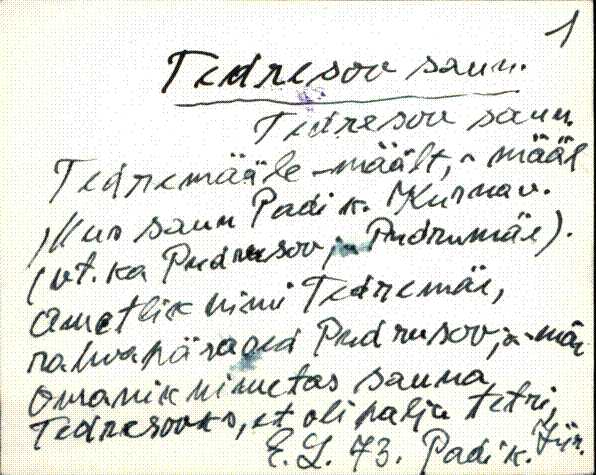 1
Tedresoo saun.
Tedresoo saun.
Tedremääle -mäält, -määl
Kus saun Padi k. Kursav.
(vt. ka Pudrusoo ja Pudrumäe).
Ametlik nimi Tedremäe,
rahvapärased Pudrusoo, ja -mäe
Omanik nimetas sauna
Tedresooks, et oli palju tetri,
E. L. 73. Padi k.